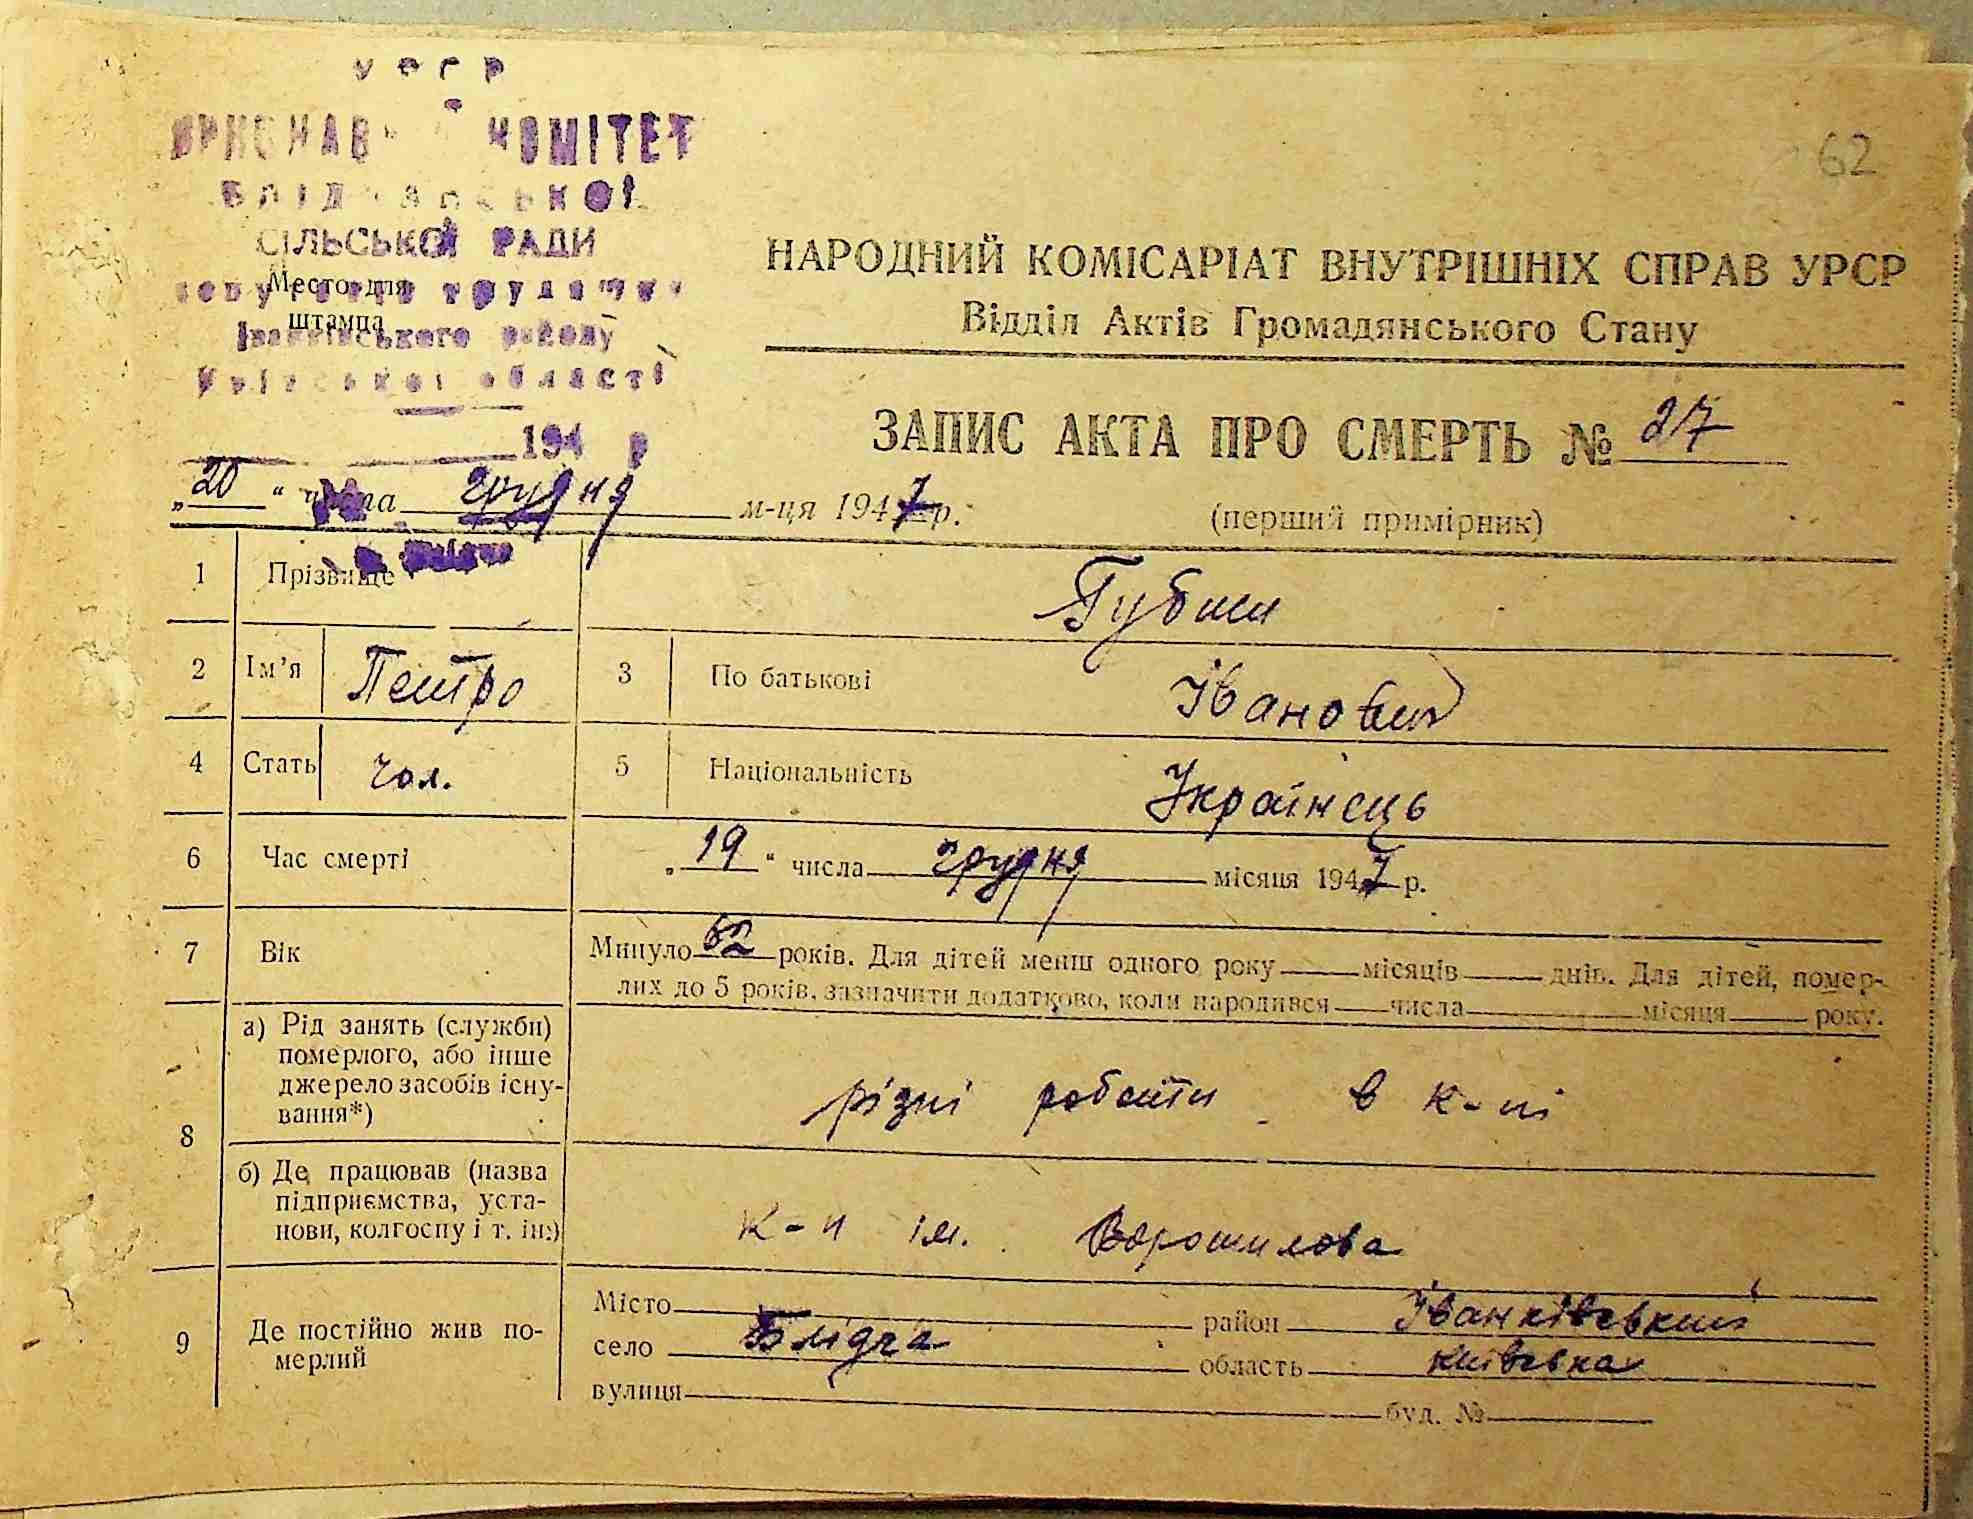 УРСР
КОМІТЕТ
СІЛЬСЬКОЇ РАДИ
Место для
штампа
Іванківського району
Київської області
194 р
62
НАРОДНИЙ КОМІСАРІАТ ВНУТРІШНІХ СПРАВ УРСР
Відділ Актів Громадянського Стану
ЗАПИС АКТА ПРО СМЕРТЬ № 27
„20“ числа грудня м-ця 1947 р.
(перший примірник)
1 Прізвище Губиш
2 Ім'я Петро 3 По батькові Іванович
4 Стать чол. 5 Національність Українець
6 Час смерті „19“ числа грудня місяця 1947 р.
7 Вік Минуло 62 років. Для дітей менш одного року місяців днів. Для дітей, помер-
лих до 5 років, зазначити додатково, коли народився числа місяця року.
8 а) Рід занять (служби)
померлого, або інше
джерело засобів існу-
вання*)
різні роботи в к-пі
б) Де працював (назва
підприємства, уста-
нови, колгоспу і т. ін.)
к-п ім. Ворошилова
9 Де постійно жив по-
мерлий
Місто район Іванківський
село Блідча область Київська
вулиця буд. №